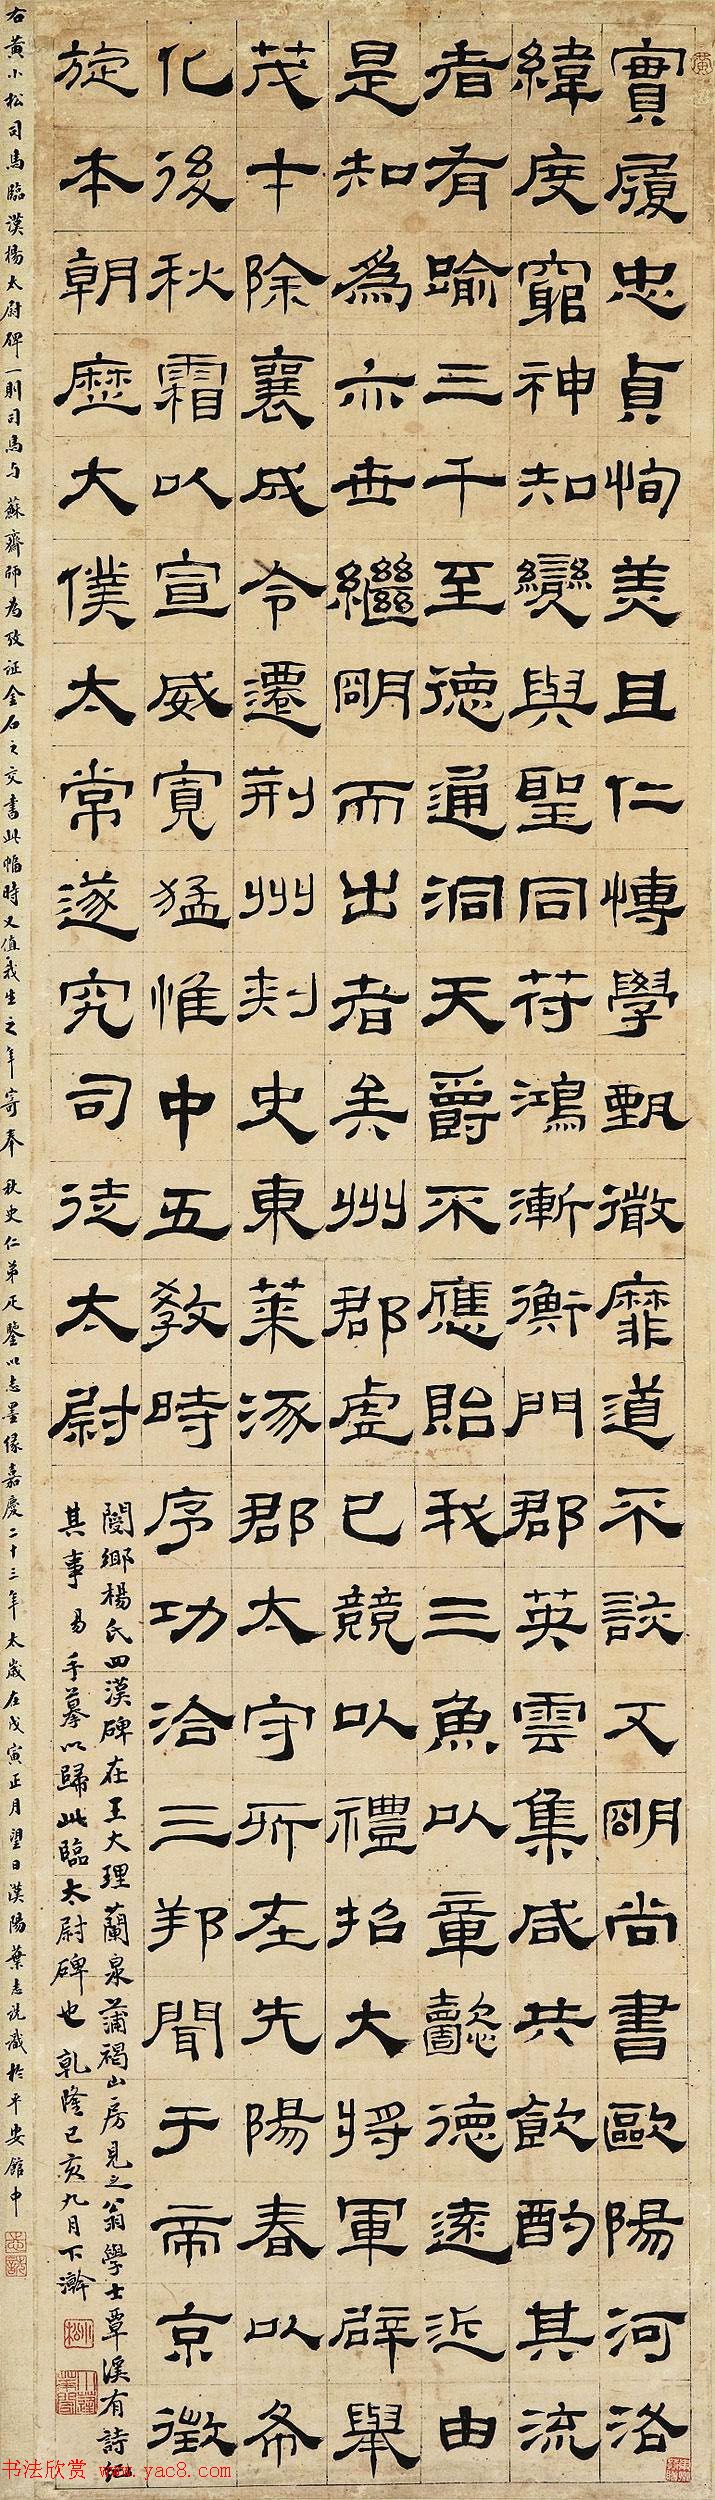 實履忠貞恂美且仁愽學甄微靡道不該又朙尚書歐陽河洛
緯度窮神知變與聖同符鴻漸衡門郡英雲集咸共飲酌其流
者有踰三千至德通洞天爵不應貽我三魚以章懿德遠近由
是知為亦世繼朙而出者矣州郡虛己競以禮招大將軍辟舉
茂才除襄成令遷荊州刺史東萊涿郡太守所在先陽春以布
化後秋霜以宣威寬猛惟中五教時序功洽三邦聞于帝京徵
旋本朝歷太僕太常遂究司徒太尉
閿鄉楊氏四漢碑在王大理蘭泉蒲褐山房見之翁學士覃溪有詩紀
其事易手摹以歸此臨太尉碑也乾隆己亥九月下澣
右黃小松司馬臨漢楊太尉碑一則司馬与蘇齋師為攷証金石之交書此幅時又值我生之年寄奉秋史仁弟疋鑒以志墨緣嘉慶二十三年太歲在戊寅正月望日漢陽葉志詵識於平安館中
书法欣赏 www.yac8.com